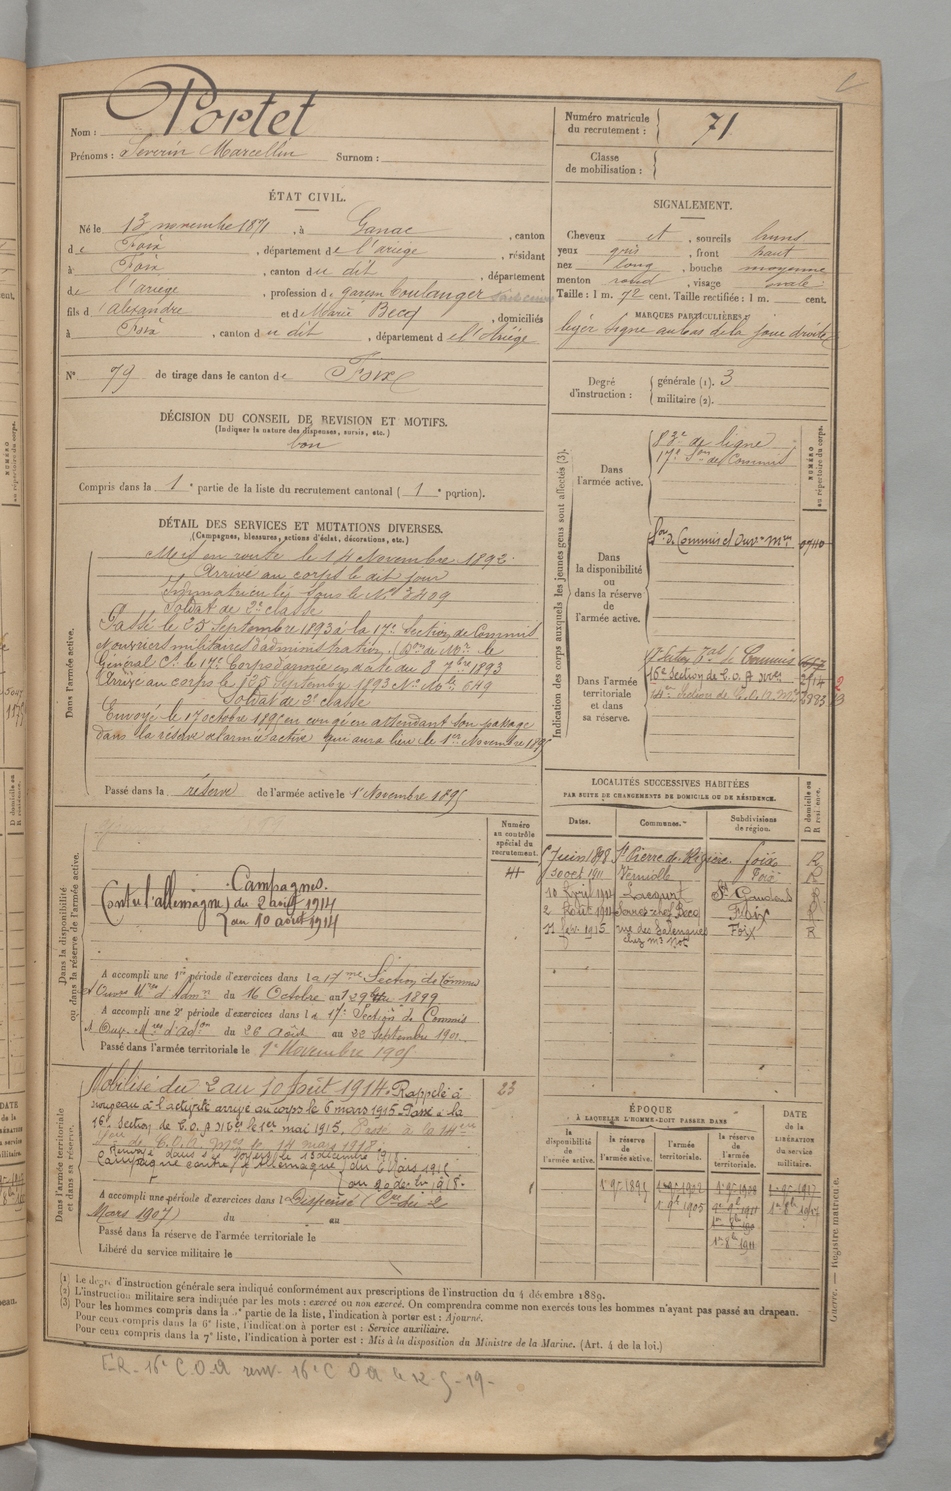 Nom : Portet
Prénoms : Severin Marcellin Surnom :
ÉTAT CIVIL.
Né le 13 novembre 1871, à Ganac, canton
de Foix, département de l'ariege, résidant
à Foix, canton du dit, département
de l'ariege, profession de garçon boulanger
fils d'alexandre et de Marie Becq, domiciliés
à Foix, canton du dit, département de l'Ariège
N° 79 de tirage dans le canton de Foix
DÉCISION DU CONSEIL DE REVISION ET MOTIFS.
(Indiquer la nature des dispenses, sursis, etc.)
bon
Compris dans la 1e partie de la liste du recrutement cantonal (1e portion).
DÉTAIL DES SERVICES ET MUTATIONS DIVERSES.
(Campagnes, blessures, actions d'éclat, décorations, etc.)
Dans l'armée active.
Mis en route le 14 Novembre 1892.
Arrivé au corps le dit jour
Immatriculé sous le N° 3409
Soldat de 2e classe
Passé le 25 Septembre 1893 à la 17e Section de Commis
et ouvriers militaires d'administration. (Don de Mr le
Général Ct le 17e Corps d'armée en date du 8 7bre 1893
Arrivé au corps le 25 Septembre 1893 No Mle 649
Soldat de 2e classe
Envoyé le 17 octobre 1895 en congé en attendant son passage
dans la réserve de l'armée active qui aura lieu le 1er Novembre 1895
Passé dans la réserve de l'armée active le 1er Novembre 1895
Dans la disponibilité
ou dans la réserve de l'armée active.
Numéro
au contrôle
spécial du
recrutement.
Campagnes.
Contre l'allemagne du 2 août 1914
au 10 août 1914
A accompli une 1re période d'exercices dans la 17me Section de Commis
et Ouvrs Mres d'Admon du 16 Octobre au 1899
A accompli une 2e période d'exercices dans la 17e Section de Commis
et Ouv. Mres d'Adon du 26 Août au 22 Septembre 1901
Passé dans l'armée territoriale le 1er Novembre 1905
Dans l'armée territoriale
et dans sa réserve.
Mobilisé du 2 au 10 Août 1914. Rappelé à
nouveau à l'activité arrivé au corps le 6 mars 1915. Passé à la
16e Section de C.O.A. Mres le 1er mai 1915. Passé à la 14eme
Son de C.O.A. Mres le 14 mars 1918.
Renvoyé dans ses foyers le 18 décembre 1918.
Campagne contre l'Allemagne du 6 Mars 1915
23
A accompli une période d'exercices dans l Dispensé (Cre du 2
Mars 1907) du au
Passé dans la réserve de l'armée territoriale le
Libéré du service militaire le
Numéro matricule
du recrutement : 71
Classe
de mobilisation :
SIGNALEMENT.
Cheveux et, sourcils bruns
yeux gris, front haut
nez long, bouche moyenne
menton rond, visage ovale
Taille : 1 m. 72 cent. Taille rectifiée : 1 m. cent.
MARQUES PARTICULIÈRES
léger signe au bas de la joue droite
Degré
d'instruction :
générale (1). 3
militaire (2).
Indication des corps auxquels les jeunes gens sont affectés (3).
NUMÉRO
au répertoire du corps.
Dans
l'armée active.
83e de ligne
17e Son de Commis
Dans
la disponibilité
ou
dans la réserve
de
l'armée active.
Son de Commis et Ouvrs Mres
Dans l'armée
territoriale
et dans
sa réserve.
16e Section de C.O.A Mres 2914
14e Section de C.O.A. Mres
LOCALITÉS SUCCESSIVES HABITÉES
PAR SUITE DE CHANGEMENTS DE DOMICILE OU DE RÉSIDENCE.
Dates. Communes. Subdivisions de région. D domicile ou R résidence.
5 Juin 1898 St Pierre de Rivière Foix R
30 oct 1911 Verniolle Foix R
10 Avril 1914 Lacourt St Gaudens R
2 Août 1914 Foix R
21 fév. 1915 rue des Salenques Foix R
ÉPOQUE
À LAQUELLE L'HOMME DOIT PASSER DANS
la disponibilité de l'armée active.
la réserve de l'armée active.
l'armée territoriale.
la réserve de l'armée territoriale.
DATE de la LIBÉRATION du service militaire.
(1) Le degré d'instruction générale sera indiqué conformément aux prescriptions de l'instruction du 4 décembre 1889.
(2) L'instruction militaire sera indiquée par les mots : exercé ou non exercé. On comprendra comme non exercés tous les hommes n'ayant pas passé au drapeau.
(3) Pour les hommes compris dans la 2e partie de la liste, l'indication à porter est : Ajourné.
Pour ceux compris dans la 6e liste, l'indication à porter est : Service auxiliaire.
Pour ceux compris dans la 7e liste, l'indication à porter est : Mis à la disposition du Ministre de la Marine. (Art. 4 de la loi.)
Guerre. — Registre matricule.